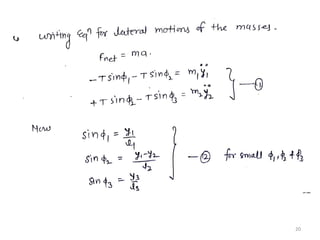 writing Eqⁿ for lateral motions of the masses.
Fnet = ma.
-T sinϕ₁ - T sinϕ₂ = m₁ÿ₁
+T sinϕ₂ - T sinϕ₃ = m₂ÿ₂ } — ①
Now
sin ϕ₁ = y₁/l₁
sin ϕ₂ = y₁-y₂/l₂ } — ② for small ϕ₁, ϕ₂ & ϕ₃
sin ϕ₃ = y₃/l₃
20